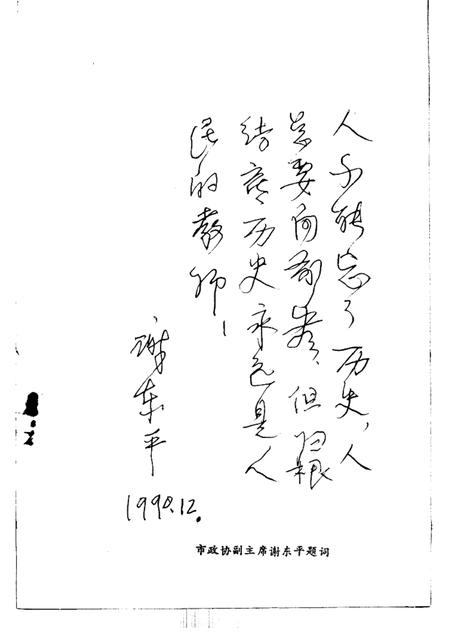 人不能忘了历史，人
总要向前看，但归根
结底，历史永远是人
民的教师！
谢东平
1990.12.
市政协副主席谢东平题词